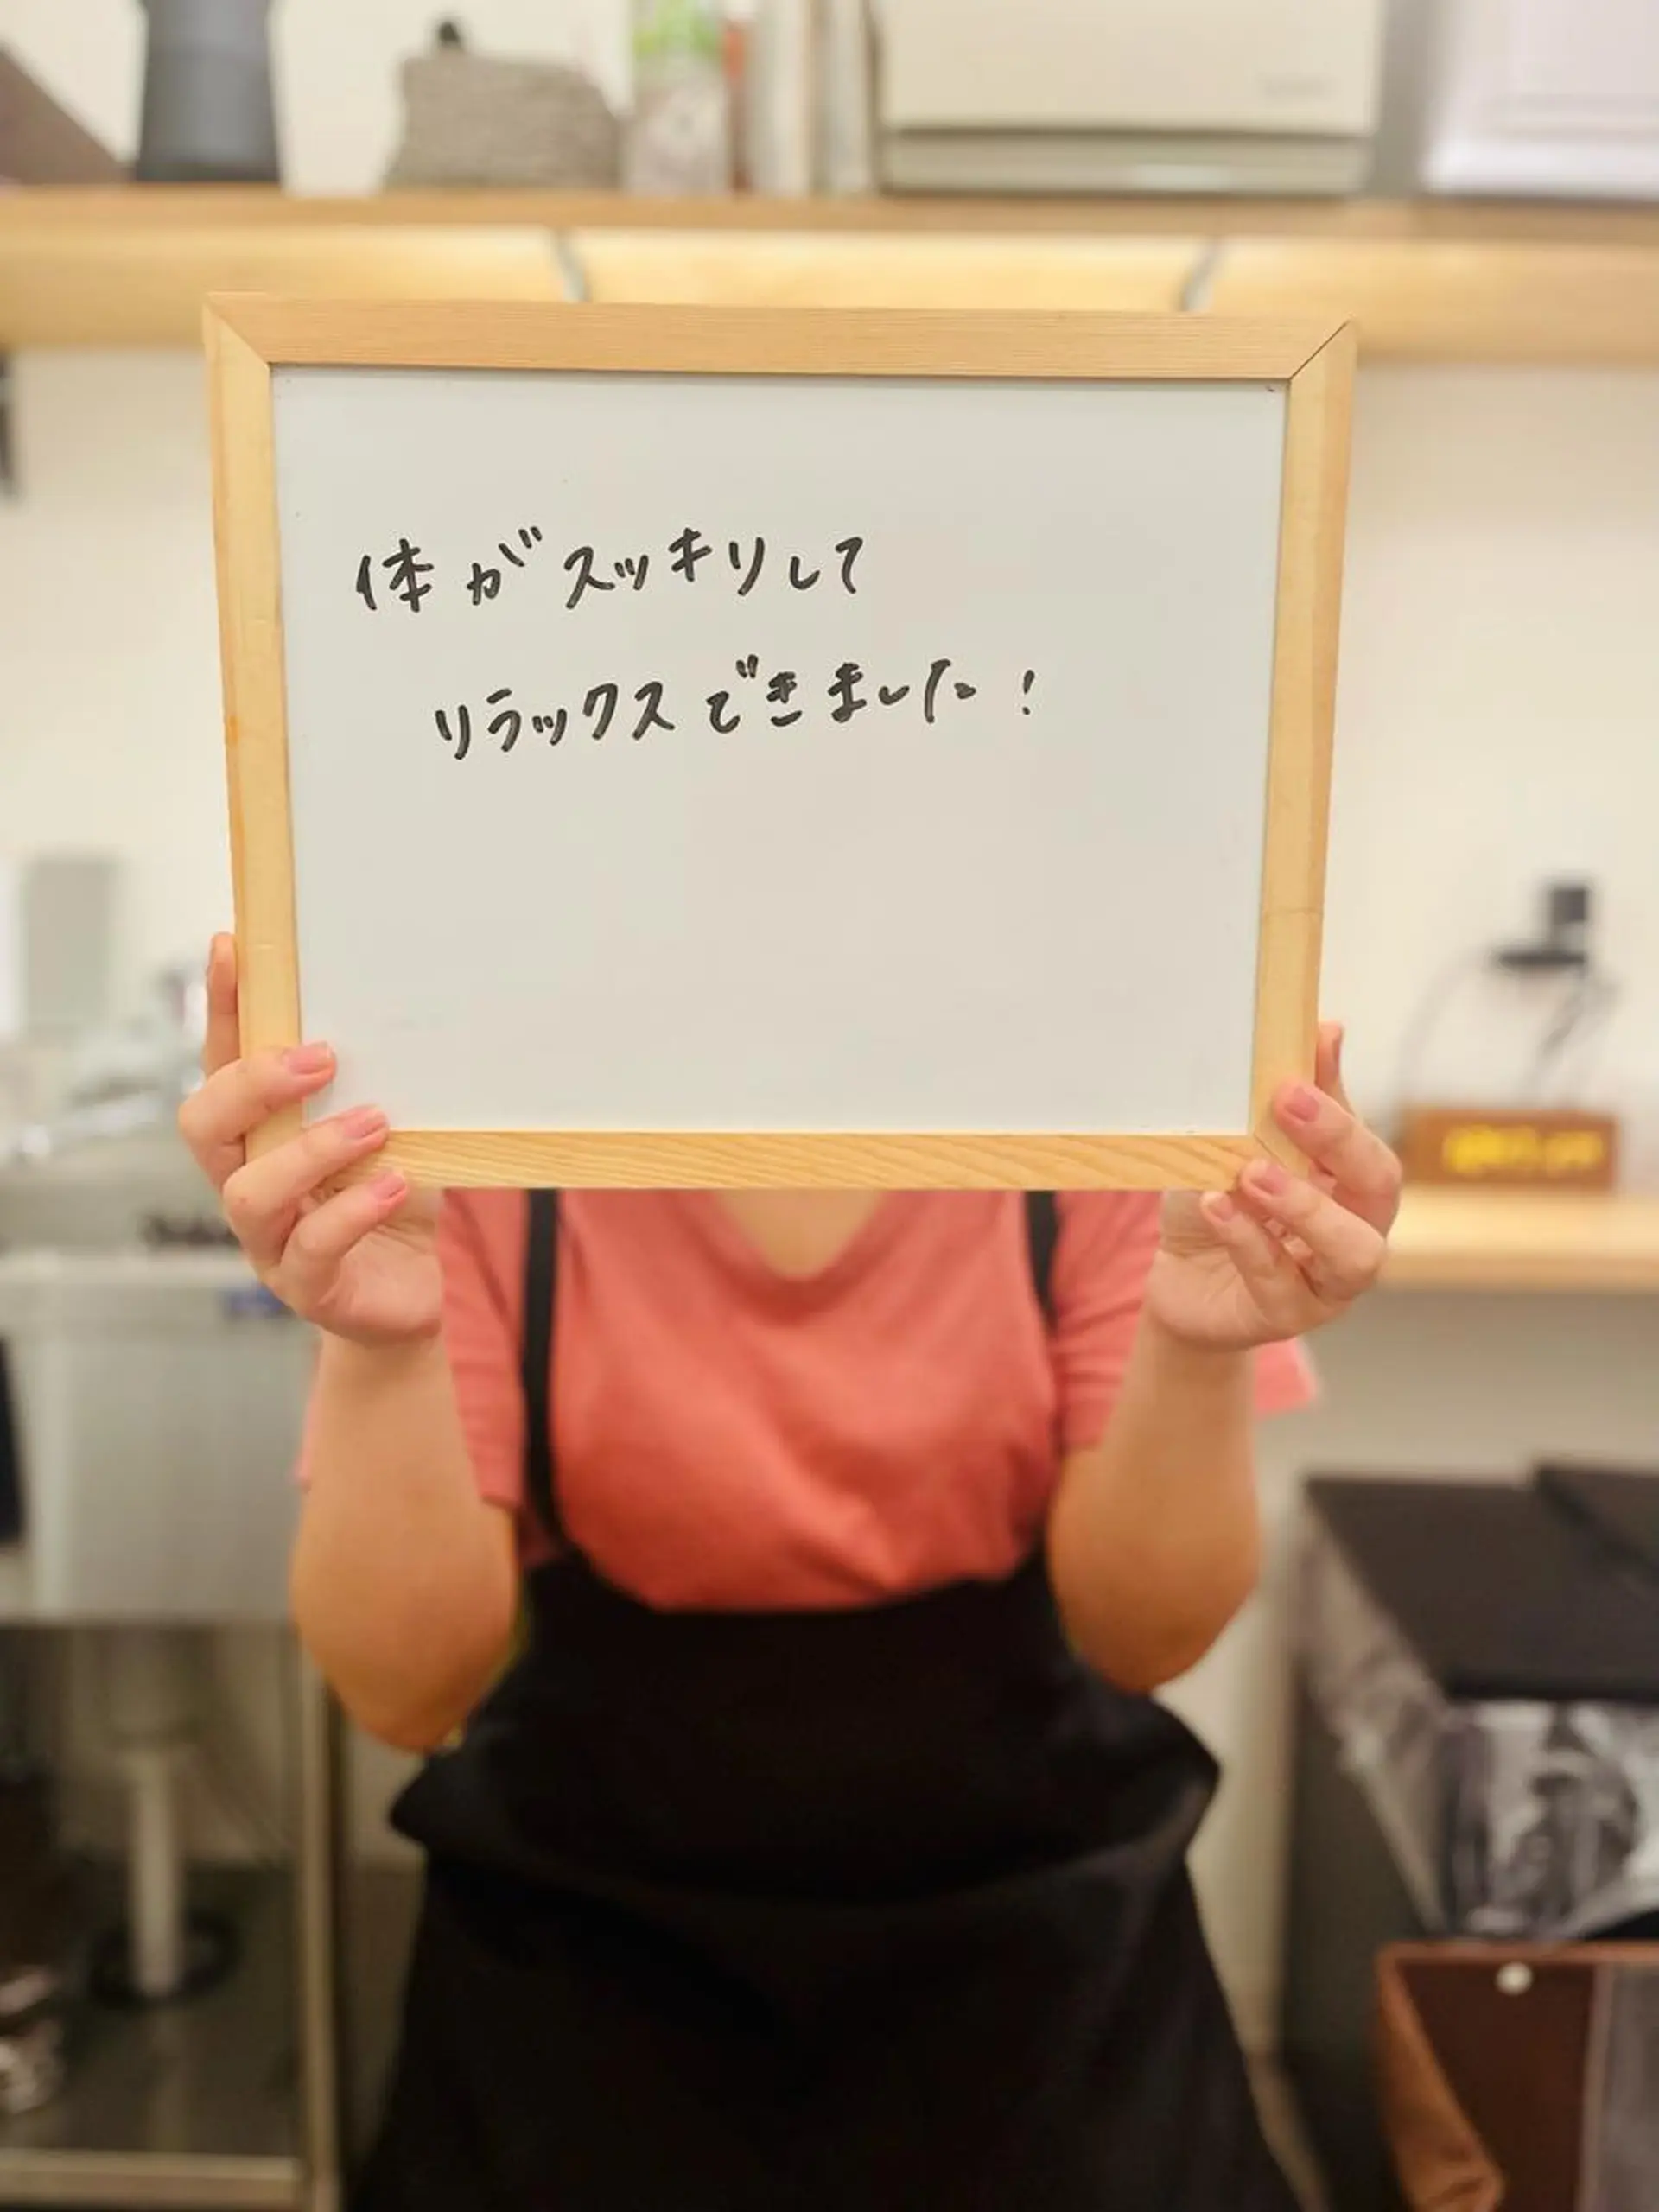 体がスッキリして
リラックスできました!